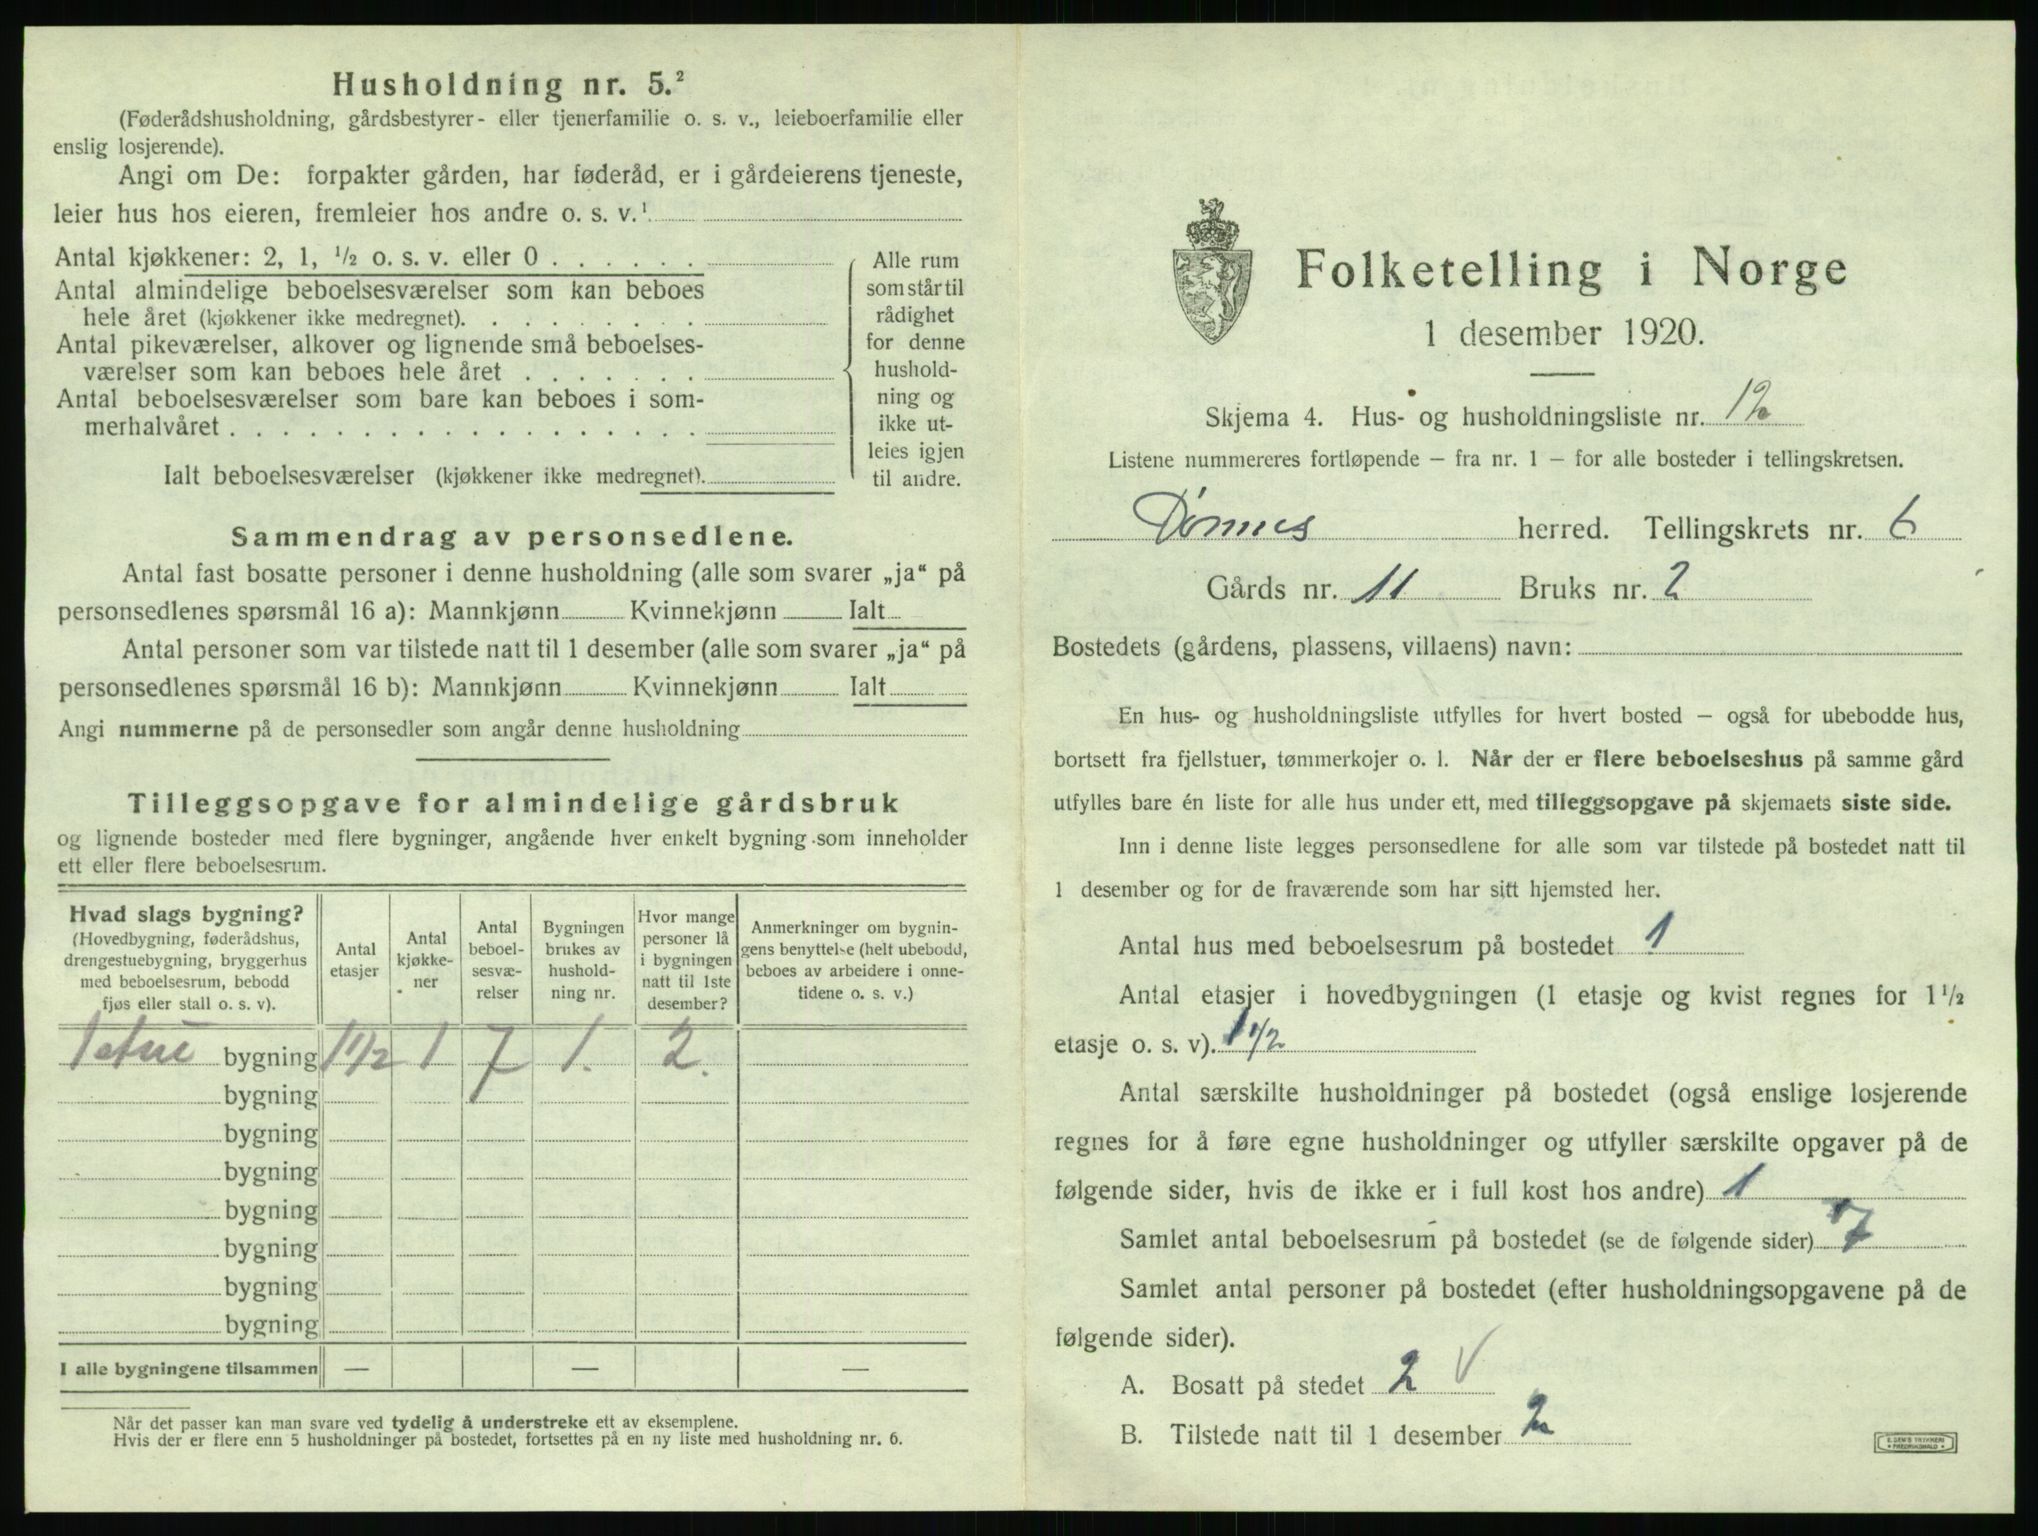 Husholdning nr. 5.²
(Føderådshusholdning, gårdsbestyrer- eller tjenerfamilie o. s. v., leieboerfamilie eller
enslig losjerende).
Angi om De: forpakter gården, har føderåd, er i gårdeierens tjeneste,
leier hus hos eieren, fremleier hos andre o. s. v.¹
Antal kjøkkener: 2, 1, ½ o. s. v. eller 0 . . . . . .
Antal almindelige beboelsesværelser som kan beboes
hele året (kjøkkener ikke medregnet). . . . . . . . .
Antal pikeværelser, alkover og lignende små beboelses-
værelser som kan beboes hele året . . . . . . .
Antal beboelsesværelser som bare kan beboes i som-
merhalvåret . . . . . . . . . . . . . . . . . .
Ialt beboelsesværelser (kjøkkener ikke medregnet).
Alle rum
som står til
rådighet
for denne
hushold-
ning og
ikke ut-
leies igjen
til andre.
Sammendrag av personsedlene.
Antal fast bosatte personer i denne husholdning (alle som svarer „ja“ på
personsedlenes spørsmål 16 a): Mannkjønn Kvinnekjønn Ialt
Antal personer som var tilstede natt til 1 desember (alle som svarer „ja“ på
personsedlenes spørsmål 16 b): Mannkjønn Kvinnekjønn Ialt
Angi nummerne på de personsedler som angår denne husholdning
Tilleggsopgave for almindelige gårdsbruk
og lignende bosteder med flere bygninger, angående hver enkelt bygning som inneholder
ett eller flere beboelsesrum.
Hvad slags bygning?
(Hovedbygning, føderådshus,
drengestuebygning, bryggerhus
med beboelsesrum, bebodd
fjøs eller stall o. s. v).
Antal
etasjer
Antal
kjøkke-
ner
Antal
beboel-
sesvæ-
relser
Bygningen
brukes av
hushold-
ning nr.
Hvor mange
personer lå
i bygningen
natt til 1ste
desember?
Anmerkninger om bygnin-
gens benyttelse (helt ubebodd,
beboes av arbeidere i onne-
tidene o. s. v.)
bygning 1½ 1 7 1. 2.
bygning
bygning
bygning
bygning
bygning
bygning
bygning
I alle bygningene tilsammen — — —
Når det passer kan man svare ved tydelig å understreke ett av eksemplene.
Hvis der er flere enn 5 husholdninger på bostedet, fortsettes på en ny liste med husholdning nr. 6.
Folketelling i Norge
1 desember 1920.
Skjema 4. Hus- og husholdningsliste nr. 12
Listene nummereres fortløpende – fra nr. 1 – for alle bosteder i tellingskretsen.
Dønnes herred. Tellingskrets nr. 6
Gårds nr. 11 Bruks nr. 2
Bostedets (gårdens, plassens, villaens) navn:
En hus- og husholdningsliste utfylles for hvert bosted – også for ubebodde hus,
bortsett fra fjellstuer, tømmerkojer o. l. Når der er flere beboelseshus på samme gård
utfylles bare én liste for alle hus under ett, med tilleggsopgave på skjemaets siste side.
Inn i denne liste legges personsedlene for alle som var tilstede på bostedet natt til
1 desember og for de fraværende som har sitt hjemsted her.
Antal hus med beboelsesrum på bostedet 1
Antal etasjer i hovedbygningen (1 etasje og kvist regnes for 1½
etasje o. s. v). 1½
Antal særskilte husholdninger på bostedet (også enslige losjerende
regnes for å føre egne husholdninger og utfyller særskilte opgaver på de
følgende sider, hvis de ikke er i full kost hos andre) 1
Samlet antal beboelsesrum på bostedet (se de følgende sider) 7
Samlet antal personer på bostedet (efter husholdningsopgavene på de
følgende sider).
A. Bosatt på stedet 2 V
B. Tilstede natt til 1 desember 2